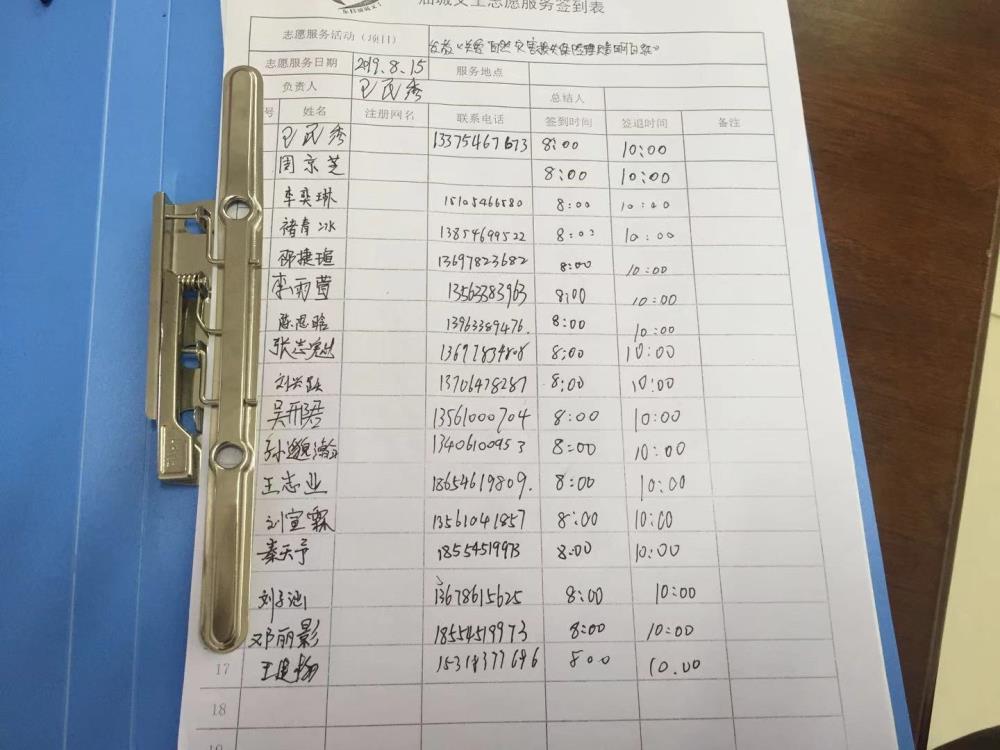 油城义工志愿服务签到表
志愿服务活动（项目）
志愿服务日期 2019.8.15 服务地点
负责人 总结人
号 姓名 注册网名 联系电话 签到时间 签退时间 备注
13375467673 8:00 10:00
周京芝 8:00 10:00
李奕琳 15105466580 8:00 10:00
褚春冰 13854699522 8:00 10:00
邵捷瑄 13697823682 8:00 10:00
李雨萱 13563383963 8:00 10:00
陈思晗 13963389476. 8:00 10:00
8:00 10:00
13706478287 8:00 10:00
吴邢珺 13561000704 8:00 10:00
13406100953 8:00 10:00
王志业 18654619809. 8:00 10:00
刘宣霖 13561041857 8:00 10:00
秦天予 18554519973 8:00 10:00
刘子涵 13678615625 8:00 10:00
邓丽影 18554519973 8:00 10:00
17 15319377696 8:00 10.00
18
19